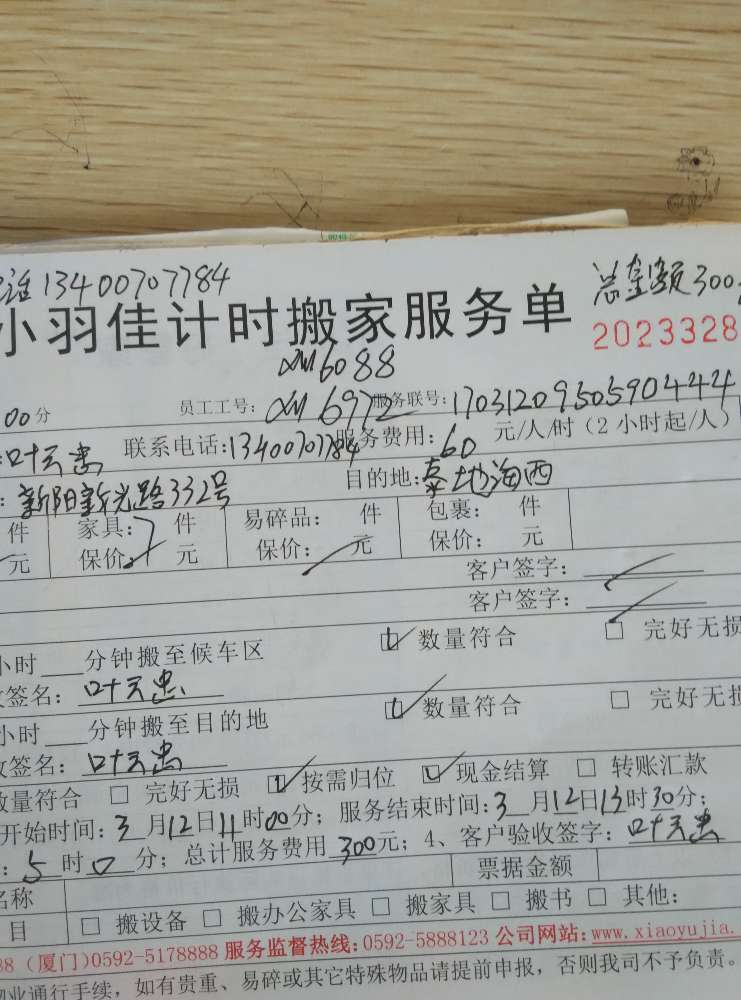 话13400707784 总金额300元
小羽佳计时搬家服务单 2023328
XM6088
00分 员工工号: XM6972 服务联号:17031209505590444
叶天忠 联系电话:13400707784 服务费用:60 元/人/时（2小时起/人）
新阳新光路332号 目的地: 海西
件 家具: 7 件 易碎品: 件 包裹: 件
元 保价: 元 保价: 元 保价: 元
客户签字:
客户签字:
小时 分钟搬至候车区 数量符合 □ 完好无损
签名: 叶天忠
小时 分钟搬至目的地 数量符合 □ 完好无损
签名: 叶天忠
数量符合 □ 完好无损 按需归位 现金结算 □ 转账汇款
开始时间:3月12日11时00分; 服务结束时间:3月12日13时30分;
: 5 时0分; 总计服务费用300元; 4、客户验收签字: 叶天忠
名称 票据金额
目 □ 搬设备 □ 搬办公家具 □ 搬家具 □ 搬书 □ 其他:
88（厦门)0592-5178888 服务监督热线:0592-5888123 公司网站:www.xiaoyujia.
物业通行手续, 如有贵重、易碎或其它特殊物品请提前申报, 否则我司不予负责。